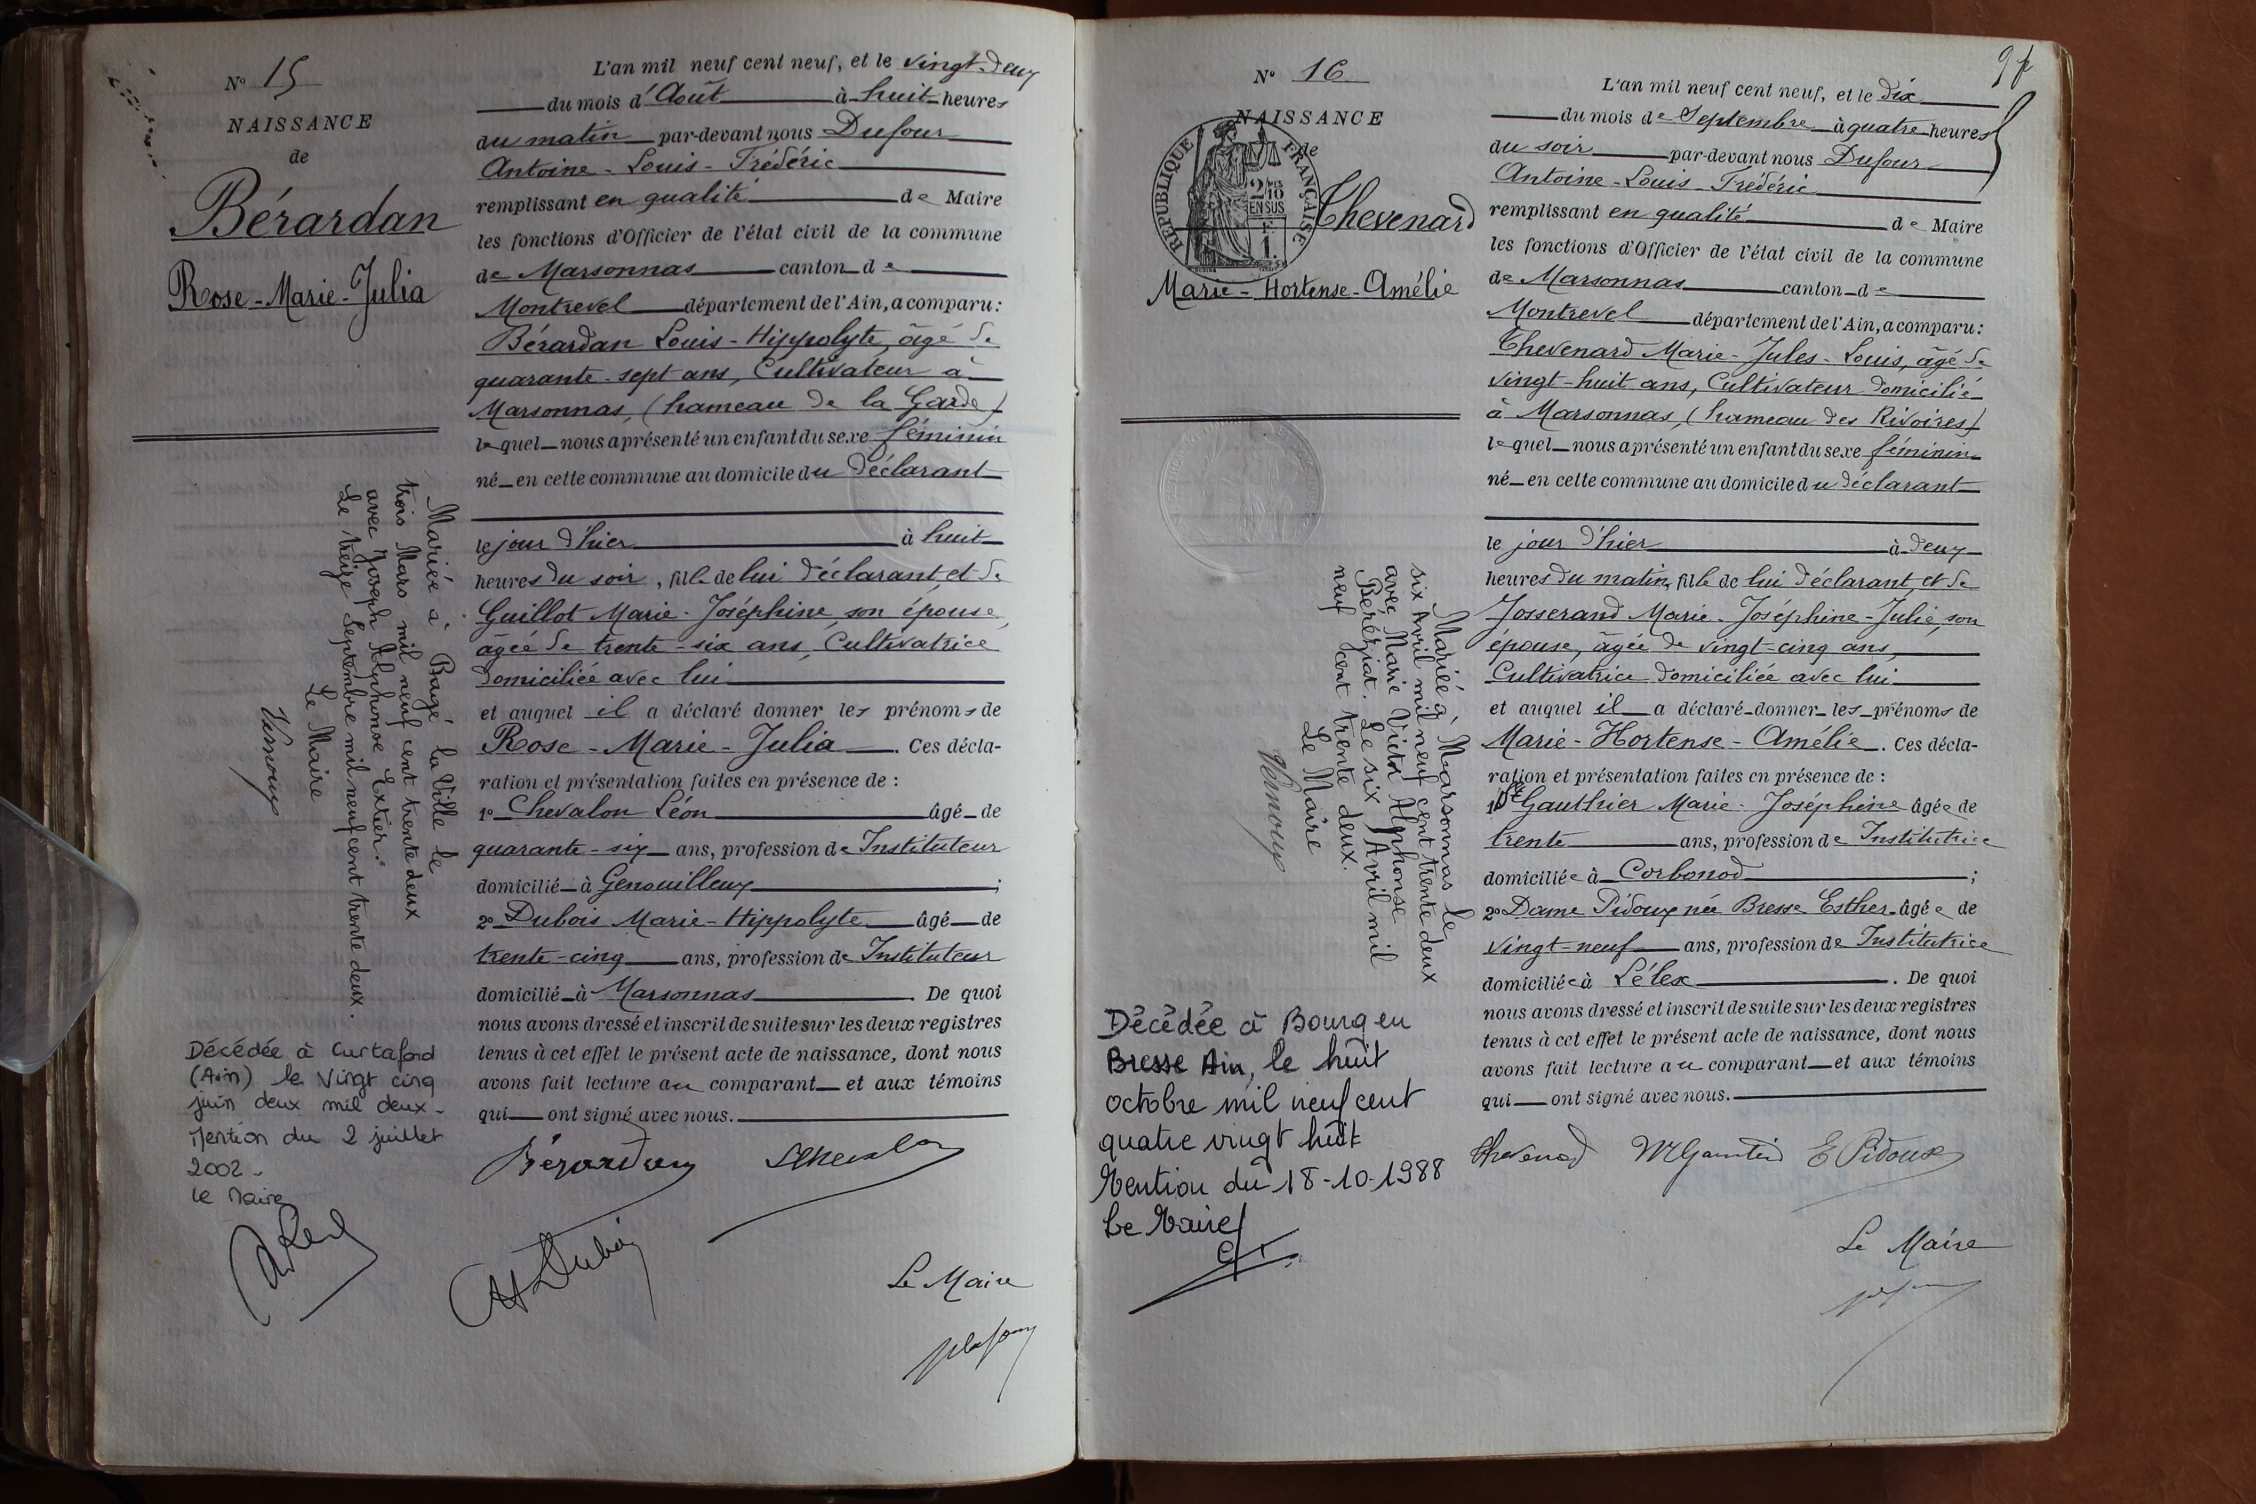 N° 15
NAISSANCE
de
Bérardan
Rose-Marie-Julia
L'an mil neuf cent neuf, et le vingt-deux
du mois d'Août à huit heures
du matin par-devant nous Dufour
Antoine-Louis-Frédéric
remplissant en qualité de Maire
les fonctions d'Officier de l'état civil de la commune
de Marsonnas canton de
Montrevel département de l'Ain, a comparu:
Bérardan Louis-Hippolyte, âgé de
quarante-sept ans, Cultivateur à
Marsonnas, (hameau de la Garde)
lequel nous a présenté un enfant du sexe féminin
né en cette commune au domicile du déclarant
le jour d'hier à huit
heures du soir, fille de lui déclarant, et de
Guillot Marie-Joséphine, son épouse,
âgée de trente-six ans, Cultivatrice
domiciliée avec lui
et auquel il a déclaré donner les prénoms de
Rose-Marie-Julia. Ces décla-
ration et présentation faites en présence de :
1° Chevalon Léon âgé de
quarante-six ans, profession de Instituteur
domicilié à Genouilleux ;
2° Dubois Marie-Hippolyte âgé de
trente-cinq ans, profession de Instituteur
domicilié à Marsonnas. De quoi
nous avons dressé et inscrit de suite sur les deux registres
tenus à cet effet le présent acte de naissance, dont nous
avons fait lecture au comparant et aux témoins
qui ont signé avec nous.
Bérardan
Le Maire
Mariée à Bagé la Ville le
trois Mars mil neuf cent trente deux
avec Joseph Alphonse Extier.
Le treize Septembre mil neuf cent trente deux.
Le Maire
Décédée à Curtafond
(Ain) le Vingt cinq
juin deux mil deux -
Mention du 2 juillet
2002 -
Le Maire
9
N° 16
NAISSANCE
de
RÉPUBLIQUE FRANÇAISE
2/10
EN SUS
Thevenard
Marie-Hortense-Amélie
L'an mil neuf cent neuf, et le dix
du mois de Septembre à quatre heures
du soir par-devant nous Dufour
Antoine-Louis-Frédéric
remplissant en qualité de Maire
les fonctions d'Officier de l'état civil de la commune
de Marsonnas canton de
Montrevel département de l'Ain, a comparu:
Thevenard Marie-Jules-Louis, âgé de
vingt-huit ans, Cultivateur domicilié
à Marsonnas, (hameau des Rivoires)
lequel nous a présenté un enfant du sexe féminin
né en cette commune au domicile du déclarant
le jour d'hier à deux
heures du matin, fille de lui déclarant, et de
Josserand Marie-Joséphine-Julie, son
épouse, âgée de vingt-cinq ans,
Cultivatrice domiciliée avec lui
et auquel il a déclaré donner les prénoms de
Marie-Hortense-Amélie. Ces décla-
ration et présentation faites en présence de :
1° Gauthier Marie-Joséphine âgée de
trente ans, profession de Institutrice
domiciliée à Corbonod ;
2° Dame Pidoux née Bresse Esther âgée de
vingt-neuf ans, profession de Institutrice
domiciliée à Lélex. De quoi
nous avons dressé et inscrit de suite sur les deux registres
tenus à cet effet le présent acte de naissance, dont nous
avons fait lecture au comparant et aux témoins
qui ont signé avec nous.
Thevenard M Gauthier E Pidoux
Le Maire
Mariée à Marsonnas le
six Avril mil neuf cent trente deux
avec Marie Victor Alphonse
Béréziat. Le six Avril mil
neuf cent trente deux.
Le Maire
Décédée à Bourg en
Bresse Ain, le huit
octobre mil neuf cent
quatre vingt huit
Mention du 18-10-1988
Le Maire